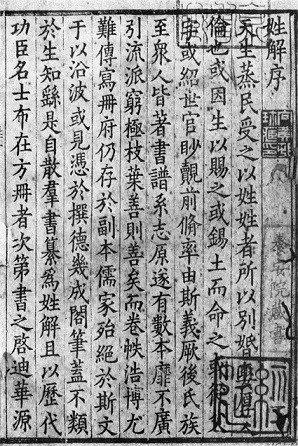 姓解序
天生蒸民受之以姓姓者所以別婚
倫也或因生以賜之或錫土而命之
字或紹世官眇覿前脩率由斯義厥後氏族
至衆人皆著書譜系志原遂有數本靡不廣
引流派窮極枝葉善則善矣而卷帙浩博尤
難傳寫冊府仍存於副本儒家殆絕於斯文
于以沿波或見憑於撰德幾成閣筆蓋不類
於生知繇是自散羣書纂爲姓解且以歷代
功臣名士布在方冊者次第書之啓迪華源
養安院藏書